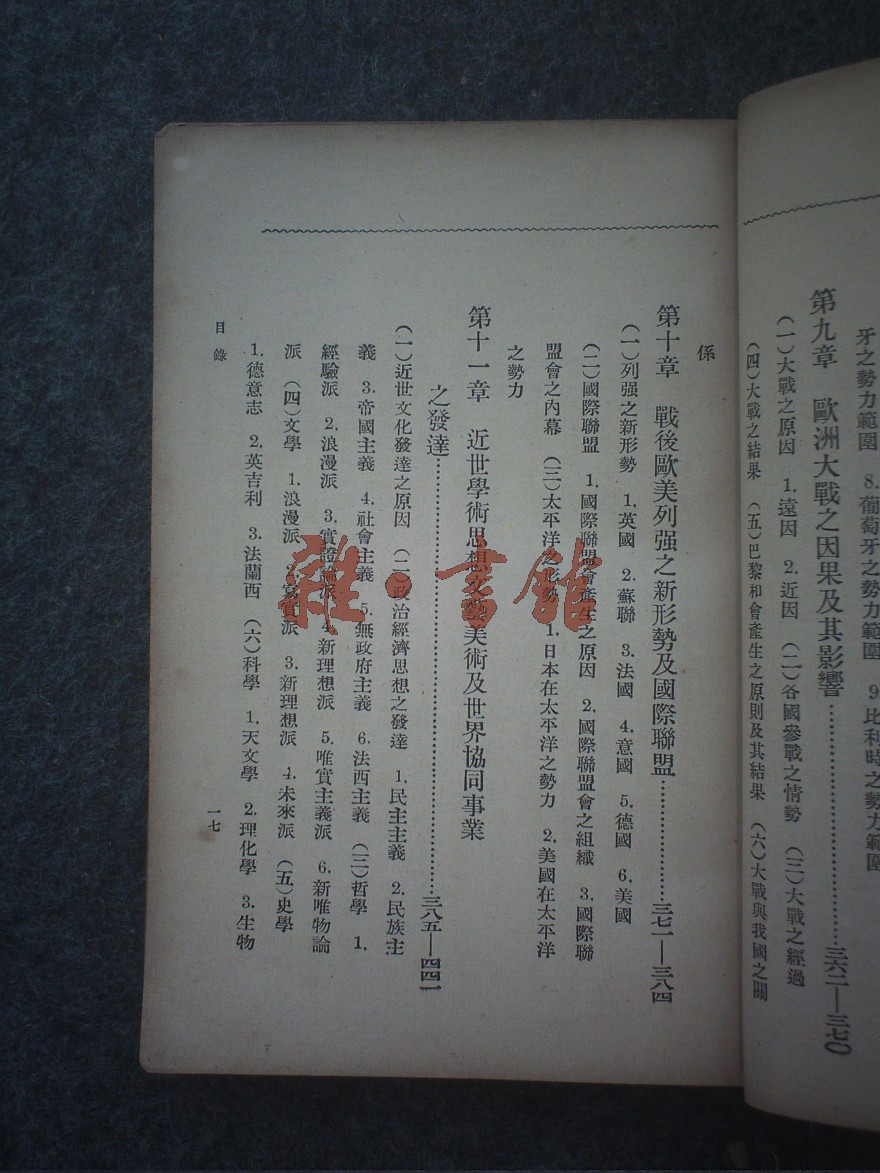 牙之勢力範圍 8.葡萄牙之勢力範圍 9.比利時之勢力範圍
第九章 歐洲大戰之因果及其影響……三六二—三七〇
(一)大戰之原因 1.遠因 2.近因 (二)各國參戰之情勢 (三)大戰之經過
(四)大戰之結果 (五)巴黎和會產生之原則及其結果 (六)大戰與我國之關
係
第十章 戰後歐美列强之新形勢及國際聯盟……三七一—三八四
(一)列强之新形勢 1.英國 2.蘇聯 3.法國 4.意國 5.德國 6.美國
(二)國際聯盟 1.國際聯盟會產生之原因 2.國際聯盟會之組織 3.國際聯
盟會之內幕 (三)太平洋之形勢 1.日本在太平洋之勢力 2.美國在太平洋
之勢力
第十一章 近世學術思想文藝美術及世界協同事業
之發達……三八五—四四一
(一)近世文化發達之原因 (二)政治經濟思想之發達 1.民主主義 2.民族主
義 3.帝國主義 4.社會主義 5.無政府主義 6.法西主義 (三)哲學 1.
經驗派 2.浪漫派 3.實證論派 4.新理想派 5.唯實主義派 6.新唯物論
派 (四)文學 1.浪漫派 2.寫實派 3.新理想派 4.未來派 (五)史學
1.德意志 2.英吉利 3.法蘭西 (六)科學 1.天文學 2.理化學 3.生物
目錄 一七
雜·書館